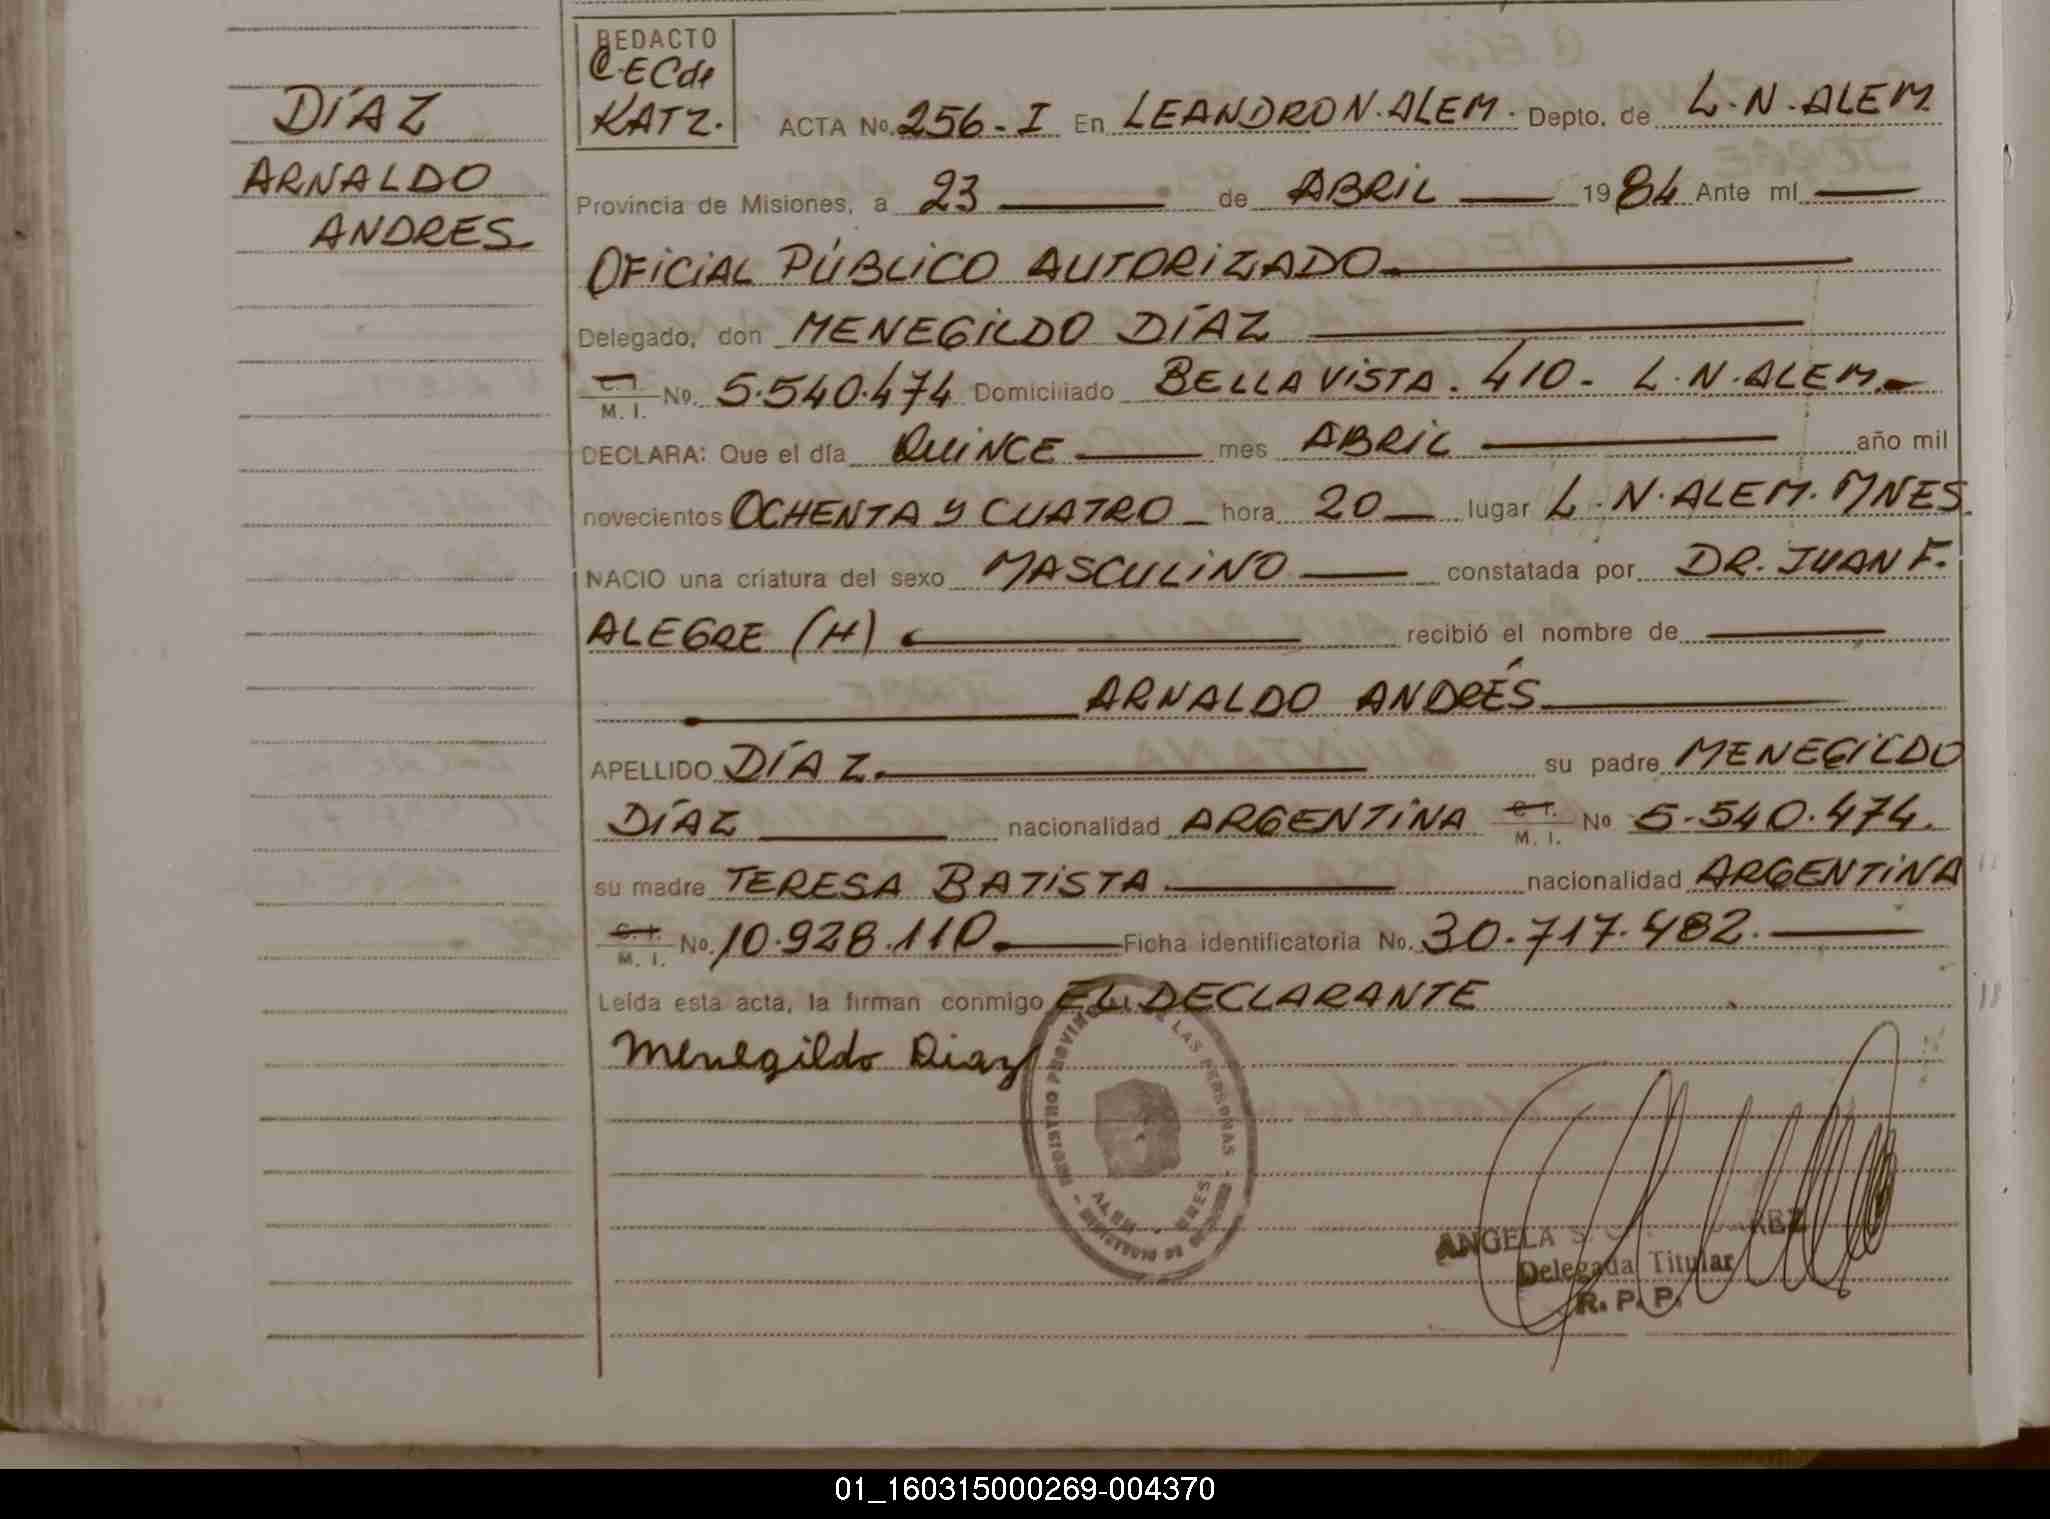 DÍAZ
ARNALDO
ANDRES
REDACTO
C. EC de
KATZ.
ACTA No. 256-I En LEANDRO N. ALEM. Depto. de L.N.ALEM
Provincia de Misiones, a 23 de ABRIL 1984 Ante mi
OFICIAL PÚBLICO AUTORIZADO
Delegado, don MENEGILDO DÍAZ
C. I. M. I. No. 5.540.474 Domiciliado BELLA VISTA. 410- L.N.ALEM.
DECLARA: Que el día QUINCE mes ABRIL año mil
novecientos OCHENTA Y CUATRO hora 20 lugar L.N.ALEM. MNES.
NACIO una criatura del sexo MASCULINO constatada por DR. JUAN F.
ALEGRE (H) recibió el nombre de
ARNALDO ANDRÉS
APELLIDO DÍAZ. su padre MENEGILDO
DÍAZ nacionalidad ARGENTINA C. I. M. I. No 5.540.474.
su madre TERESA BATISTA nacionalidad ARGENTINA
C. I. M. I. No. 10.928.110 Ficha identificatoria No. 30.717.482.
Leída esta acta, la firman conmigo EL DECLARANTE
Menegildo Diaz
REGISTRO PROVINC LAS PERSONAS
MINISTERIO DE GOBIERNO
ALEM - MNES.
ANGELA S.
Delegada Titular
R. P. P.
01_160315000269-004370